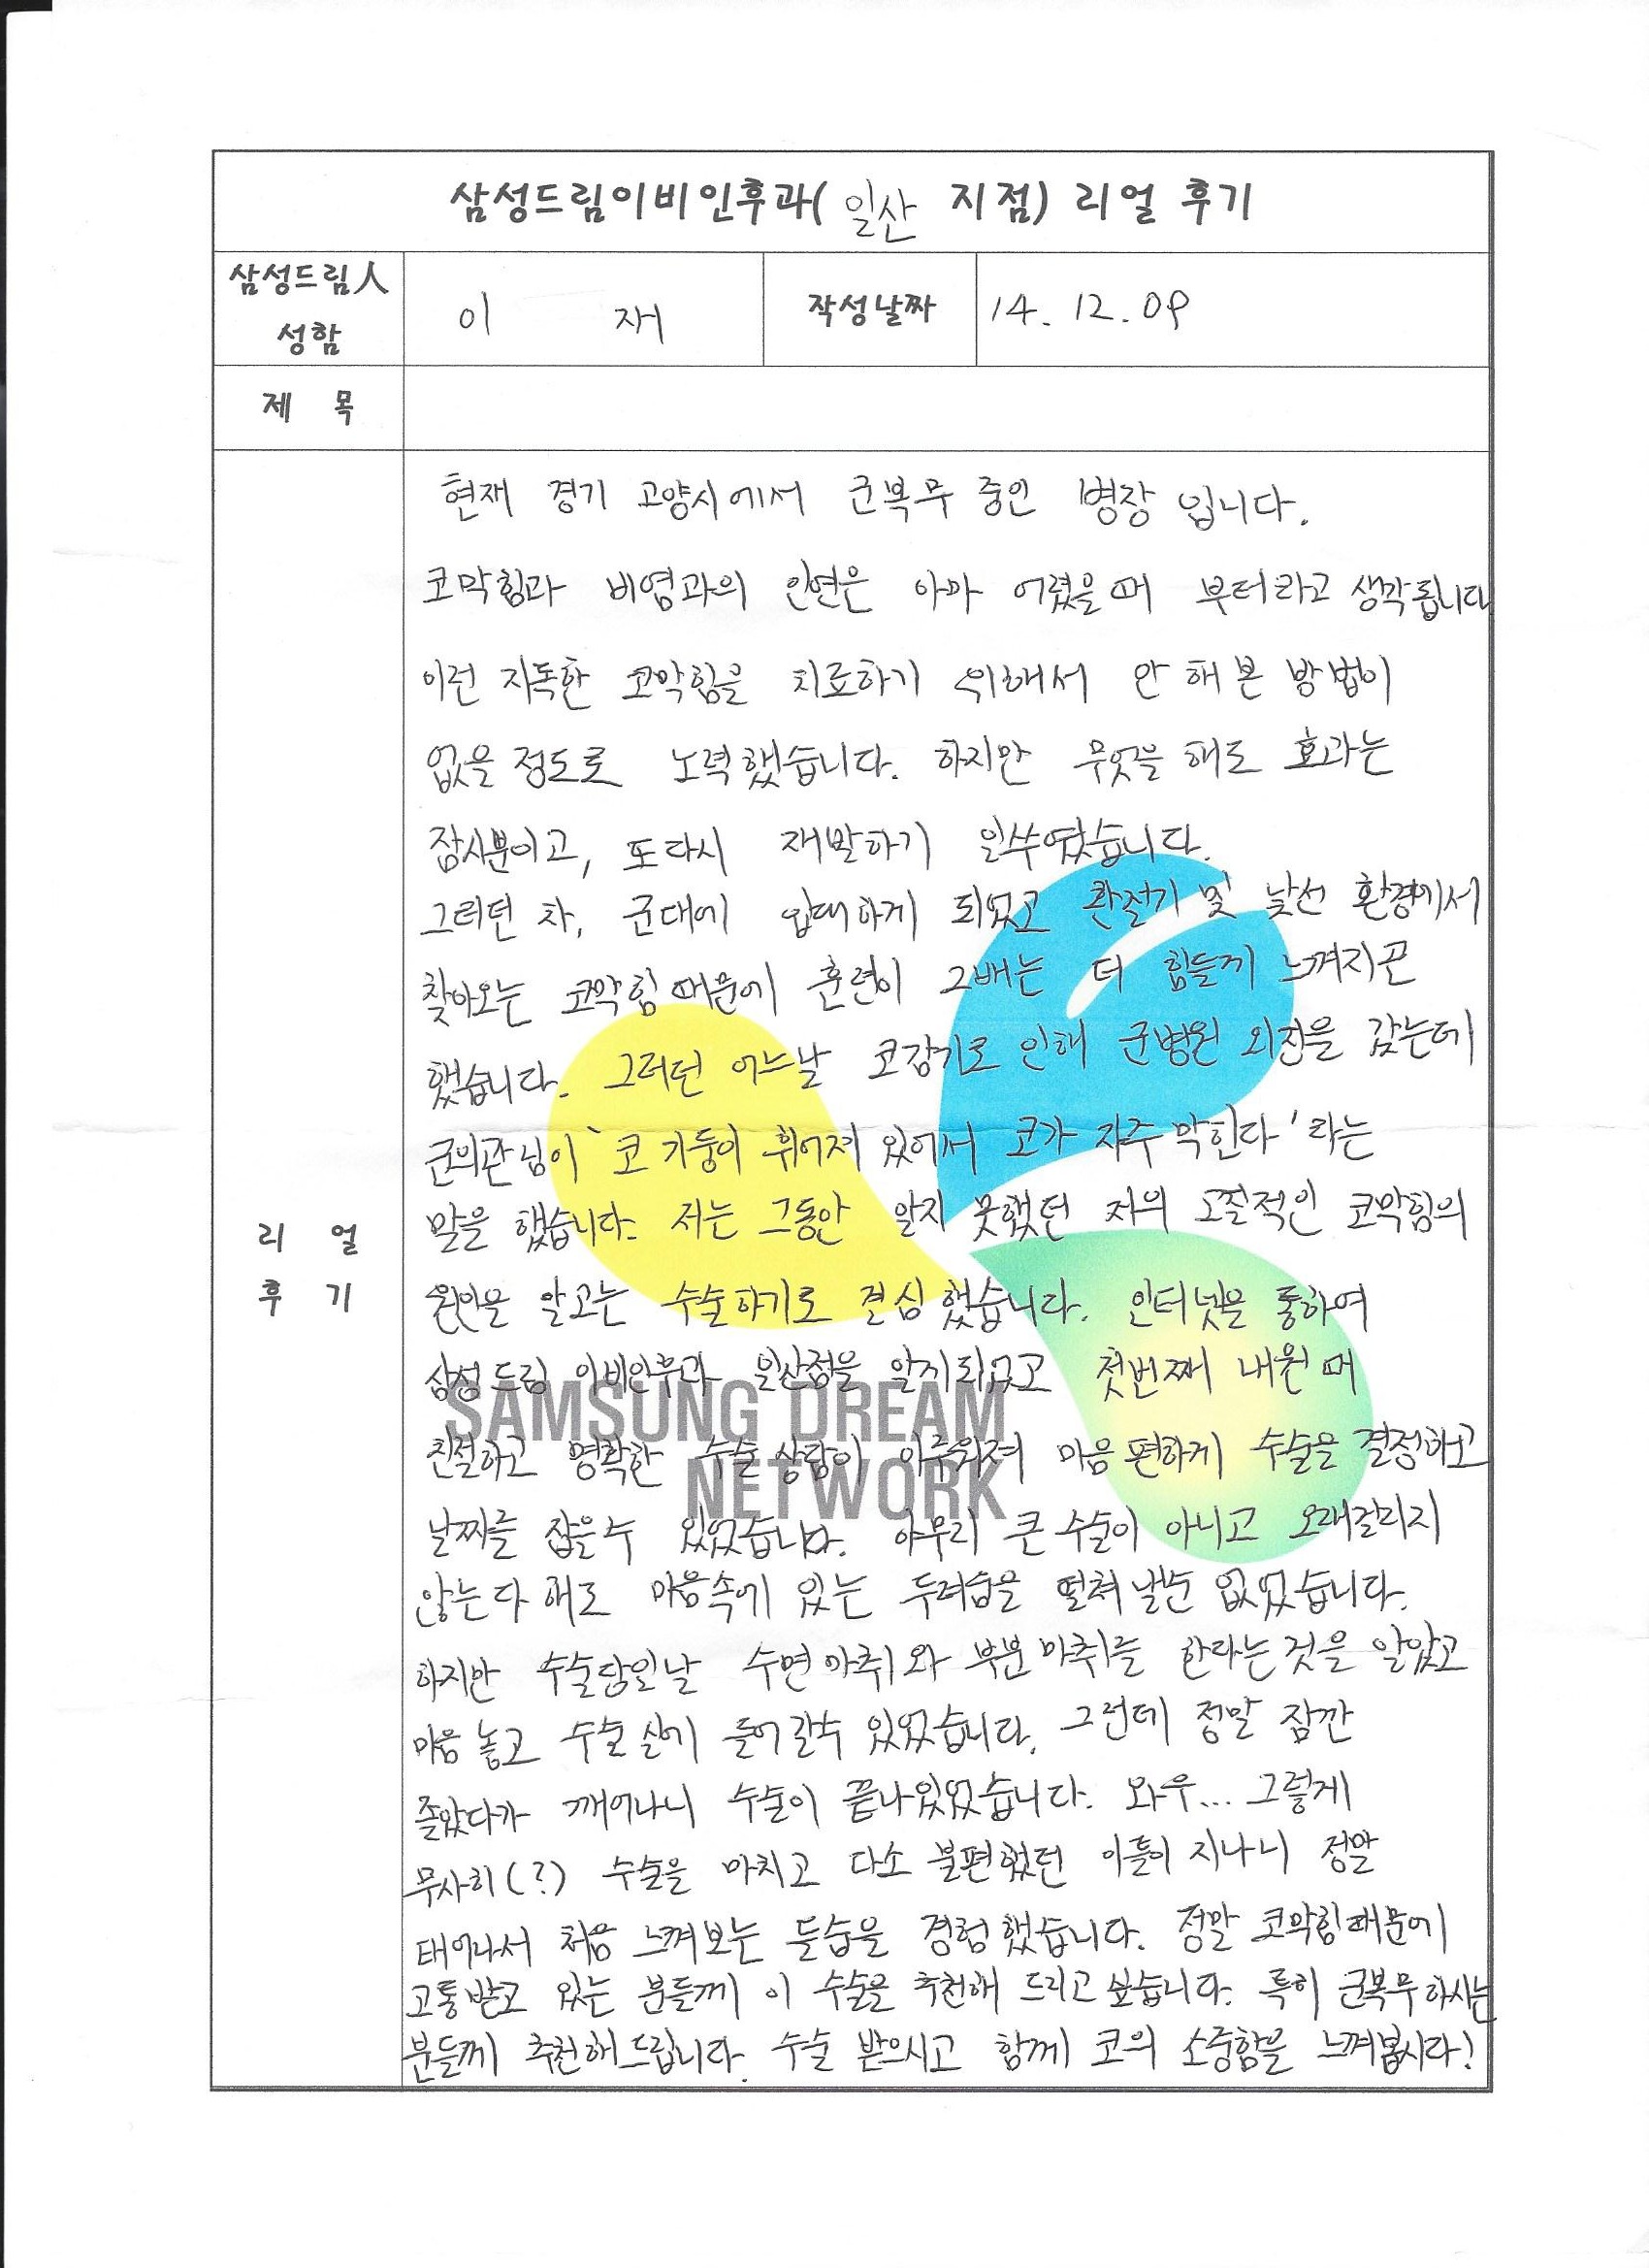 삼성드림이비인후과( 일산 지점) 리얼 후기
삼성드림人 성함
이 재
작성날짜
14. 12. 09
제 목
리 얼 후 기
현재 경기 고양시에서 군복무 중인 병장 입니다.
코막힘과 비염과의 인연은 아마 어렸을때 부터라고 생각됩니다
이런 지독한 코막힘을 치료하기 위해서 안 해 본 방법이
없을 정도로 노력했습니다. 하지만 무엇을 해도 효과는
잠시뿐이고, 또다시 재발하기 일쑤였습니다.
그러던 차, 군대에 입대하게 되었고 환절기 및 낯선 환경에서
찾아오는 코막힘 때문에 훈련이 그배는 더 힘들게 느껴지곤
했습니다. 그러던 어느날 코감기로 인해 군병원 외진을 갔는데
군의관님이 '코 기둥이 휘어져 있어서 코가 자주 막힌다'라는
말을 했습니다. 저는 그동안 알지 못했던 저의 고질적인 코막힘의
원인을 알고는 수술하기로 결심했습니다. 인터넷을 통하여
삼성드림 이비인후과 일산점을 알게되었고 첫번째 내원 때
친절하고 명확한 수술 상담이 이루워져 마음편하게 수술을 결정하고
날짜를 잡을수 있었습니다. 아무리 큰 수술이 아니고 오래걸리지
않는다 해도 마음속에 있는 두려움을 떨쳐낼순 없었습니다.
하지만 수술당일날 수면마취와 부분마취를 한다는 것을 알았고
마음 놓고 수술실에 들어갈수 있었습니다. 그런데 정말 잠깐
졸았다가 깨어나니 수술이 끝나있었습니다. 와우... 그렇게
무사히(?) 수술을 마치고 다소 불편했던 이틀이 지나니 정말
태어나서 처음 느껴보는 들숨을 경험했습니다. 정말 코막힘때문에
고통받고 있는 분들께 이 수술을 추천해 드리고 싶습니다. 특히 군복무하시는
분들께 추천해드립니다. 수술 받으시고 함께 코의 소중함을 느껴봅시다!
SAMSUNG DREAM
NETWORK